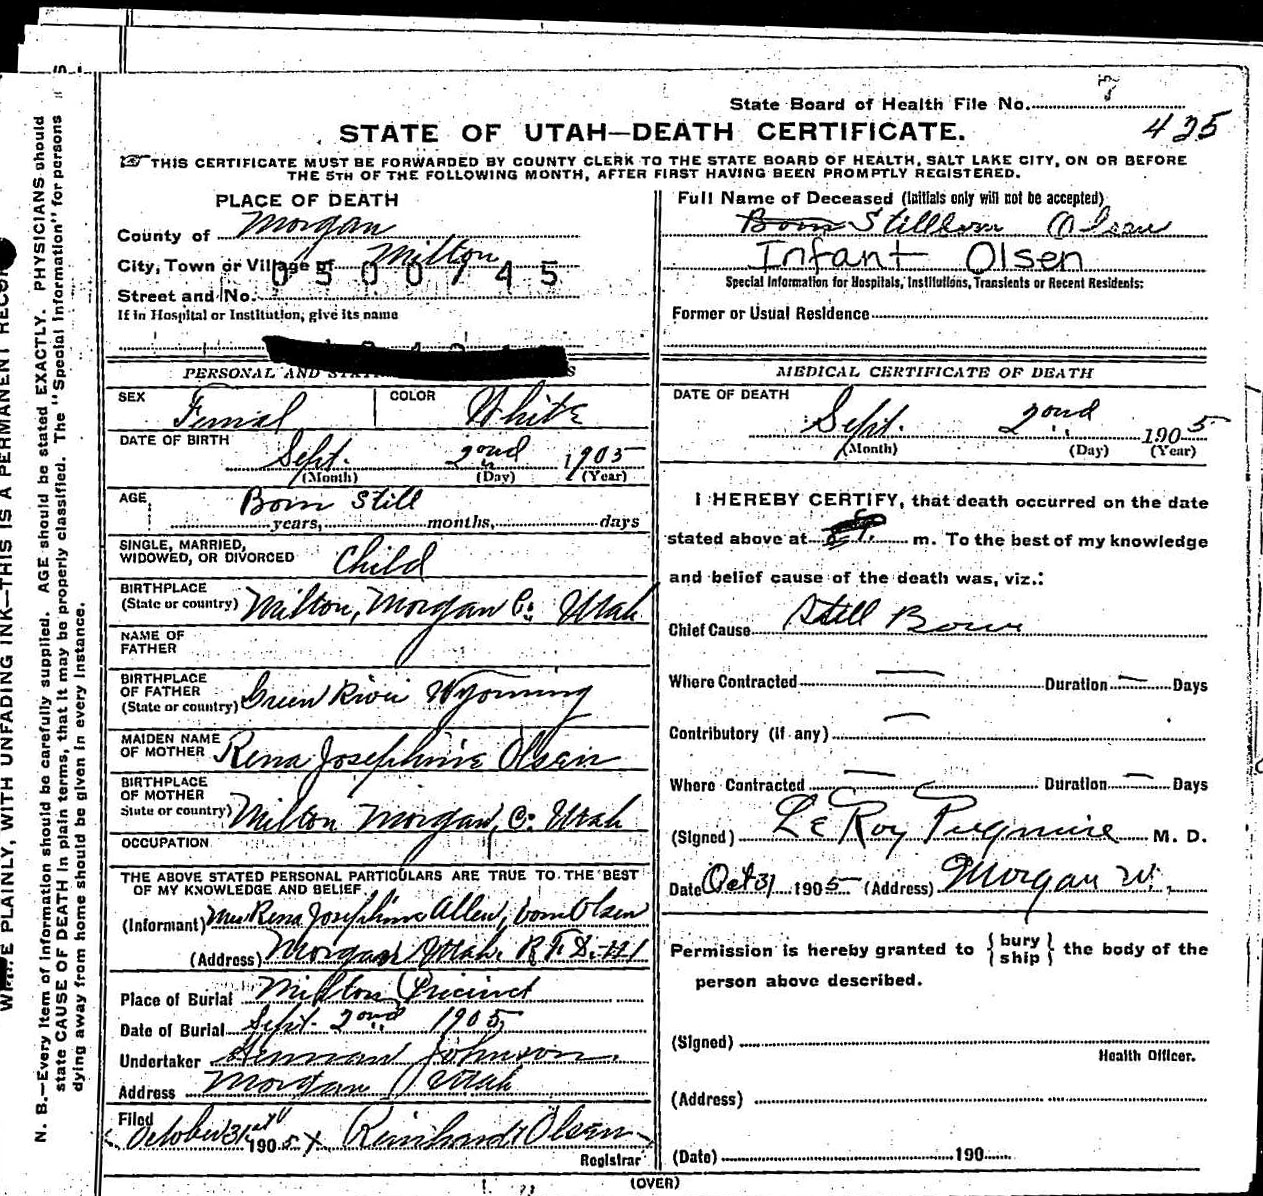 State Board of Health File No.
425
STATE OF UTAH—DEATH CERTIFICATE.
THIS CERTIFICATE MUST BE FORWARDED BY COUNTY CLERK TO THE STATE BOARD OF HEALTH, SALT LAKE CITY, ON OR BEFORE
THE 5TH OF THE FOLLOWING MONTH, AFTER FIRST HAVING BEEN PROMPTLY REGISTERED.
PLACE OF DEATH
County of Morgan
City, Town or Village of Milton
0500745
Street and No.
If in Hospital or Institution, give its name
PERSONAL AND
SEX Femal COLOR White
DATE OF BIRTH
Sept. 2ond 1905
(Month) (Day) (Year)
AGE Born Still
years, months, days
SINGLE, MARRIED,
WIDOWED, OR DIVORCED Child
BIRTHPLACE
(State or country) Milton, Morgan C: Utah
NAME OF
FATHER
BIRTHPLACE
OF FATHER
(State or country) Green River Wyoming
MAIDEN NAME
OF MOTHER Rena Josephine Olsen
BIRTHPLACE
OF MOTHER
State or country) Milton Morgan, C: Utah
OCCUPATION
THE ABOVE STATED PERSONAL PARTICULARS ARE TRUE TO THE BEST
OF MY KNOWLEDGE AND BELIEF
(Informant) Mrs Rena Josephine Allen, born Olsen
(Address) Morgan Utah. R.F.D.
Place of Burial Milton Precinct
Date of Burial Sept. 2ond 1905
Undertaker Herman Johnson
Address Morgan Utah
Filed
October 31 1905 Reinhardt Olsen
Registrar
Full Name of Deceased (Initials only will not be accepted)
Born Stillborn Olsen
Infant Olsen
Special Information for Hospitals, Institutions, Transients or Recent Residents:
Former or Usual Residence
MEDICAL CERTIFICATE OF DEATH
DATE OF DEATH
Sept. 2ond 1905
(Month) (Day) (Year)
I HEREBY CERTIFY, that death occurred on the date
stated above at m. To the best of my knowledge
and belief cause of the death was, viz.:
Chief Cause Still Born
Where Contracted — Duration — Days
Contributory (if any) —
Where Contracted — Duration — Days
(Signed) Le Roy Pugmire M. D.
Date Oct 31 1905 (Address) Morgan
Permission is hereby granted to {bury
ship} the body of the
person above described.
(Signed)
Health Officer.
(Address)
(Date) 190
(OVER)
PLAINLY, WITH UNFADING INK—THIS IS A PERMANENT RECORD
N. B.—Every item of information should be carefully supplied. AGE should be stated EXACTLY. PHYSICIANS should
state CAUSE OF DEATH in plain terms, that it may be properly classified. The "Special Information" for persons
dying away from home should be given in every instance.